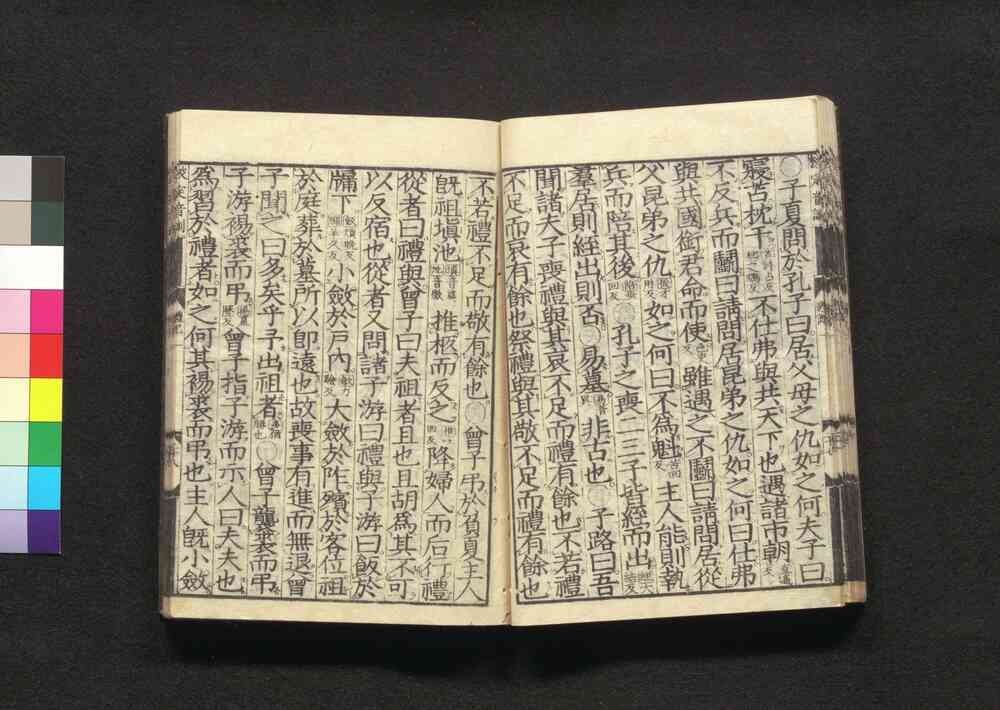 ○子夏問於孔子曰居父母之仇如之何夫子曰
寢苫枕干不仕弗與共天下也遇諸市朝
不反兵而鬭曰請問居昆弟之仇如之何曰仕弗
與共國銜君命而使雖遇之不鬭曰請問居從
父昆弟之仇如之何曰不為魁主人能則執
兵而陪其後○孔子之喪二三子皆絰而出
羣居則絰出則否○易墓非古也○子路曰吾
聞諸夫子喪禮與其哀不足而禮有餘也不若禮
不足而哀有餘也祭禮與其敬不足而禮有餘也
不若禮不足而敬有餘也○曾子弔於負夏主人
既祖塡池推柩而反之降婦人而后行禮
從者曰禮與曾子曰夫祖者且也且胡為其不可
以反宿也從者又問諸子游曰禮與子游曰飯於
牖下小斂於戶內大斂於阼殯於客位祖
於庭葬於墓所以即遠也故喪事有進而無退曾
子聞之曰多矣乎予出祖者○曾子襲裘而弔
子游裼裘而弔曾子指子游而示人曰夫夫也
為習於禮者如之何其裼裘而弔也主人既小斂